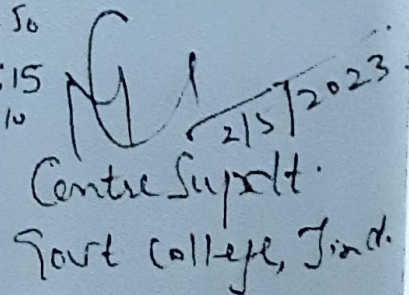 50
:15
10
2/5/2023
Centre Supdt.
Govt College, Jind.